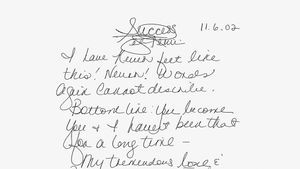 Success 11.6.02
I have never felt like
this! Never! Words
again cannot describe.
Bottom line: You
You & I haven't been that
for a long time –
My tremendous love &